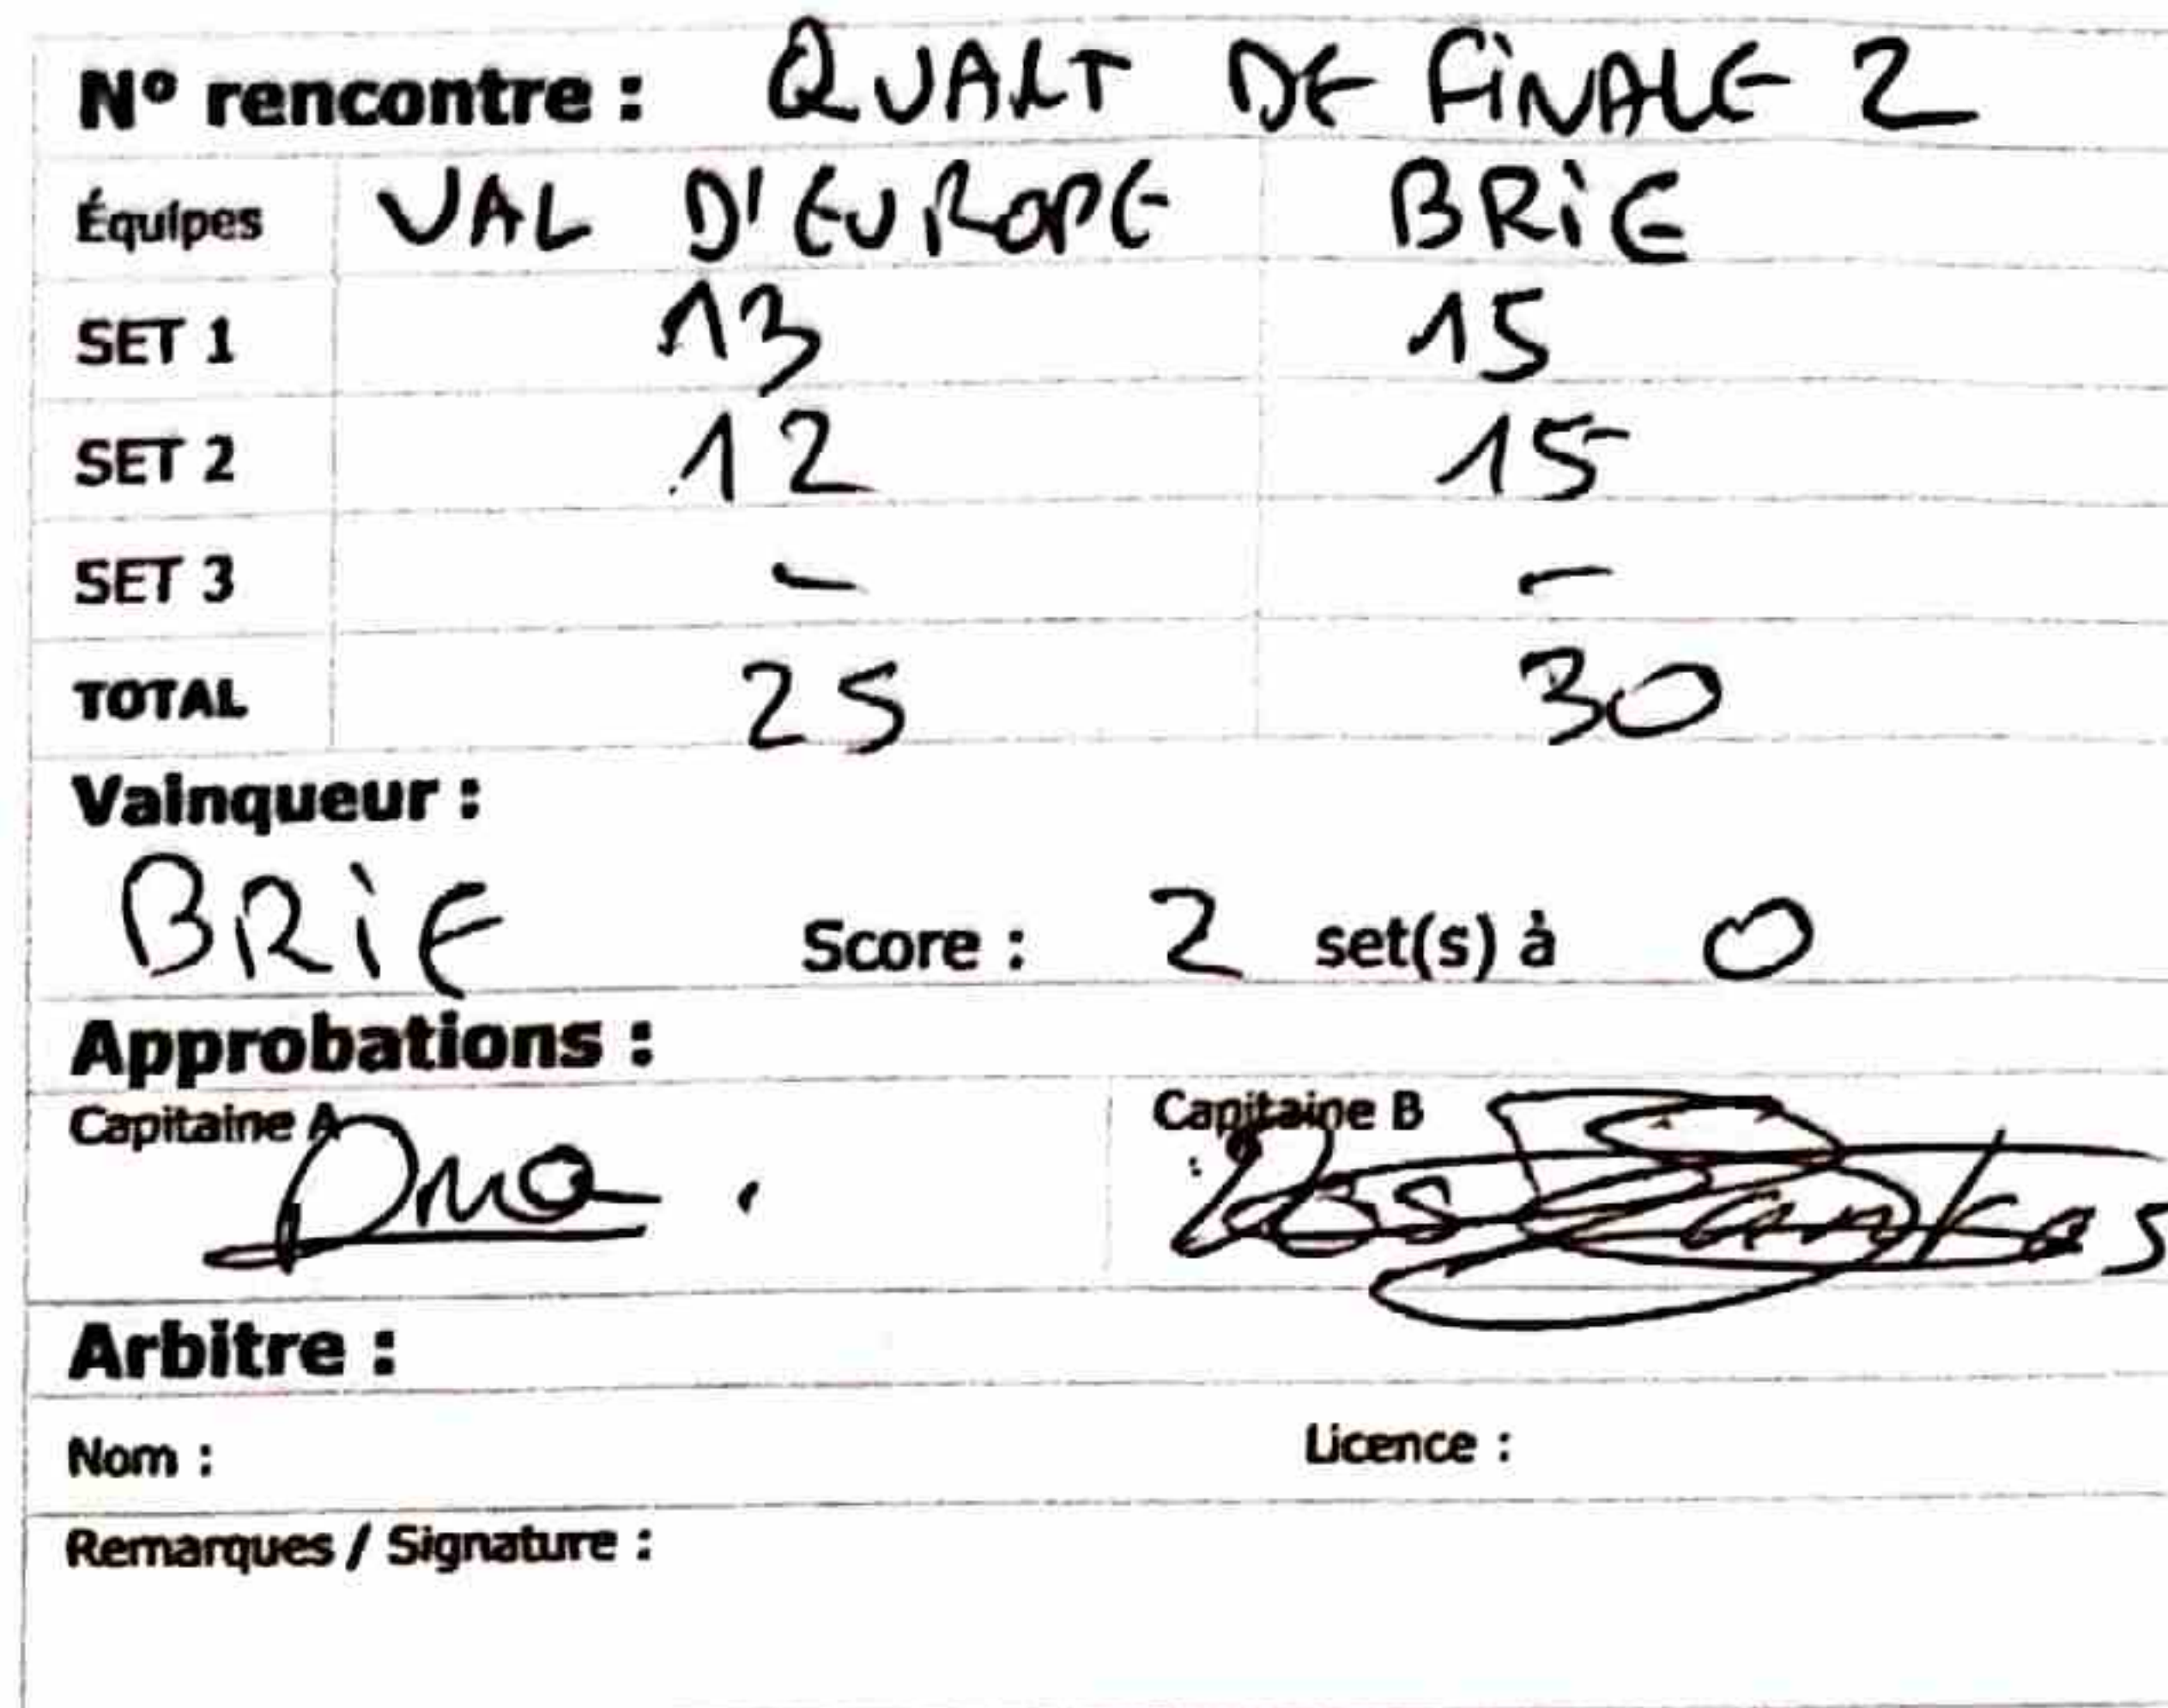 N° rencontre : QUART DE FiNALE 2
Équipes VAL D'EUROPE BRiE
SET 1 13 15
SET 2 12 15
SET 3 - -
TOTAL 25 30
Vainqueur :
BRiE Score : 2 set(s) à 0
Approbations :
Capitaine A Capitaine B
Arbitre :
Nom : Licence :
Remarques / Signature :